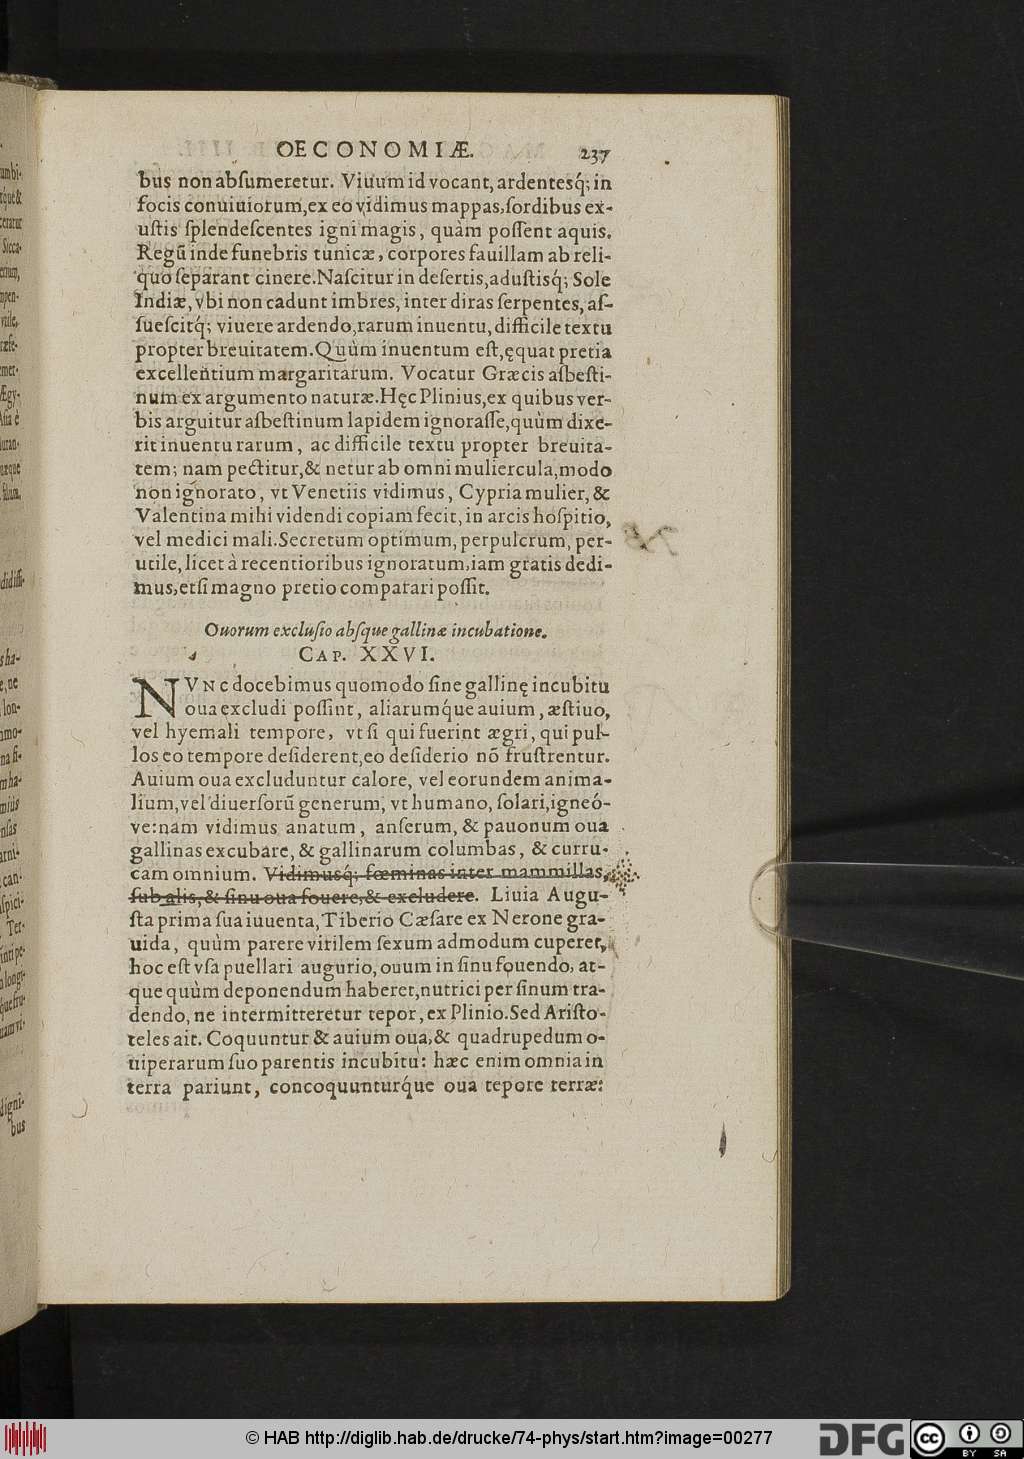 OECONOMIÆ. 237
bus non abſumeretur. Viuum id vocant, ardentesq́; in
focis conuiuiorum, ex eo vidimus mappas, ſordibus ex-
uſtis ſplendeſcentes igni magis, quàm poſſent aquis.
Regũ inde funebris tunicæ, corpores fauillam ab reli-
quo ſeparant cinere. Naſcitur in deſertis, aduſtisq́; Sole
Indiæ, vbi non cadunt imbres, inter diras ſerpentes, aſ-
ſueſcitq́; viuere ardendo, rarum inuentu, difficile textu
propter breuitatem. Quùm inuentum eſt, ęquat pretia
excellentium margaritarum. Vocatur Græcis aſbeſti-
num ex argumento naturæ. Hęc Plinius, ex quibus ver-
bis arguitur aſbeſtinum lapidem ignoraſſe, quùm dixe-
rit inuentu rarum, ac difficile textu propter breuita-
tem; nam pectitur, & netur ab omni muliercula, modo
non ignorato, vt Venetiis vidimus, Cypria mulier, &
Valentina mihi videndi copiam fecit, in arcis hoſpitio,
vel medici mali. Secretum optimum, perpulcrum, per-
utile, licet à recentioribus ignoratum, iam gratis dedi-
mus, etſi magno pretio comparari poſſit.
Ouorum excluſio abſque gallinæ incubatione.
CAP. XXVI.
NVNC docebimus quomodo ſine gallinę incubitu
oua excludi poſſint, aliarumq́ue auium, æſtiuo,
vel hyemali tempore, vt ſi qui fuerint ægri, qui pul-
los eo tempore deſiderent, eo deſiderio nõ fruſtrentur.
Auium oua excluduntur calore, vel eorundem anima-
lium, vel diuerſorũ generum, vt humano, ſolari, igneó-
ve: nam vidimus anatum, anſerum, & pauonum oua
gallinas excubare, & gallinarum columbas, & curru-
cam omnium. Vidimusq́; fœminas inter mammillas,
ſub alis, & ſinu oua fouere, & excludere. Liuia Augu-
ſta prima ſua iuuenta, Tiberio Cæſare ex Nerone gra-
uida, quùm parere virilem ſexum admodum cuperet,
hoc eſt vſa puellari augurio, ouum in ſinu fouendo, at-
que quùm deponendum haberet, nutrici per ſinum tra-
dendo, ne intermitteretur tepor, ex Plinio. Sed Ariſto-
teles ait. Coquuntur & auium oua, & quadrupedum o-
uiperarum ſuo parentis incubitu: hæc enim omnia in
terra pariunt, concoquunturq́ue oua tepore terræ:
© HAB http://diglib.hab.de/drucke/74-phys/start.htm?image=00277
DFG
cc BY SA